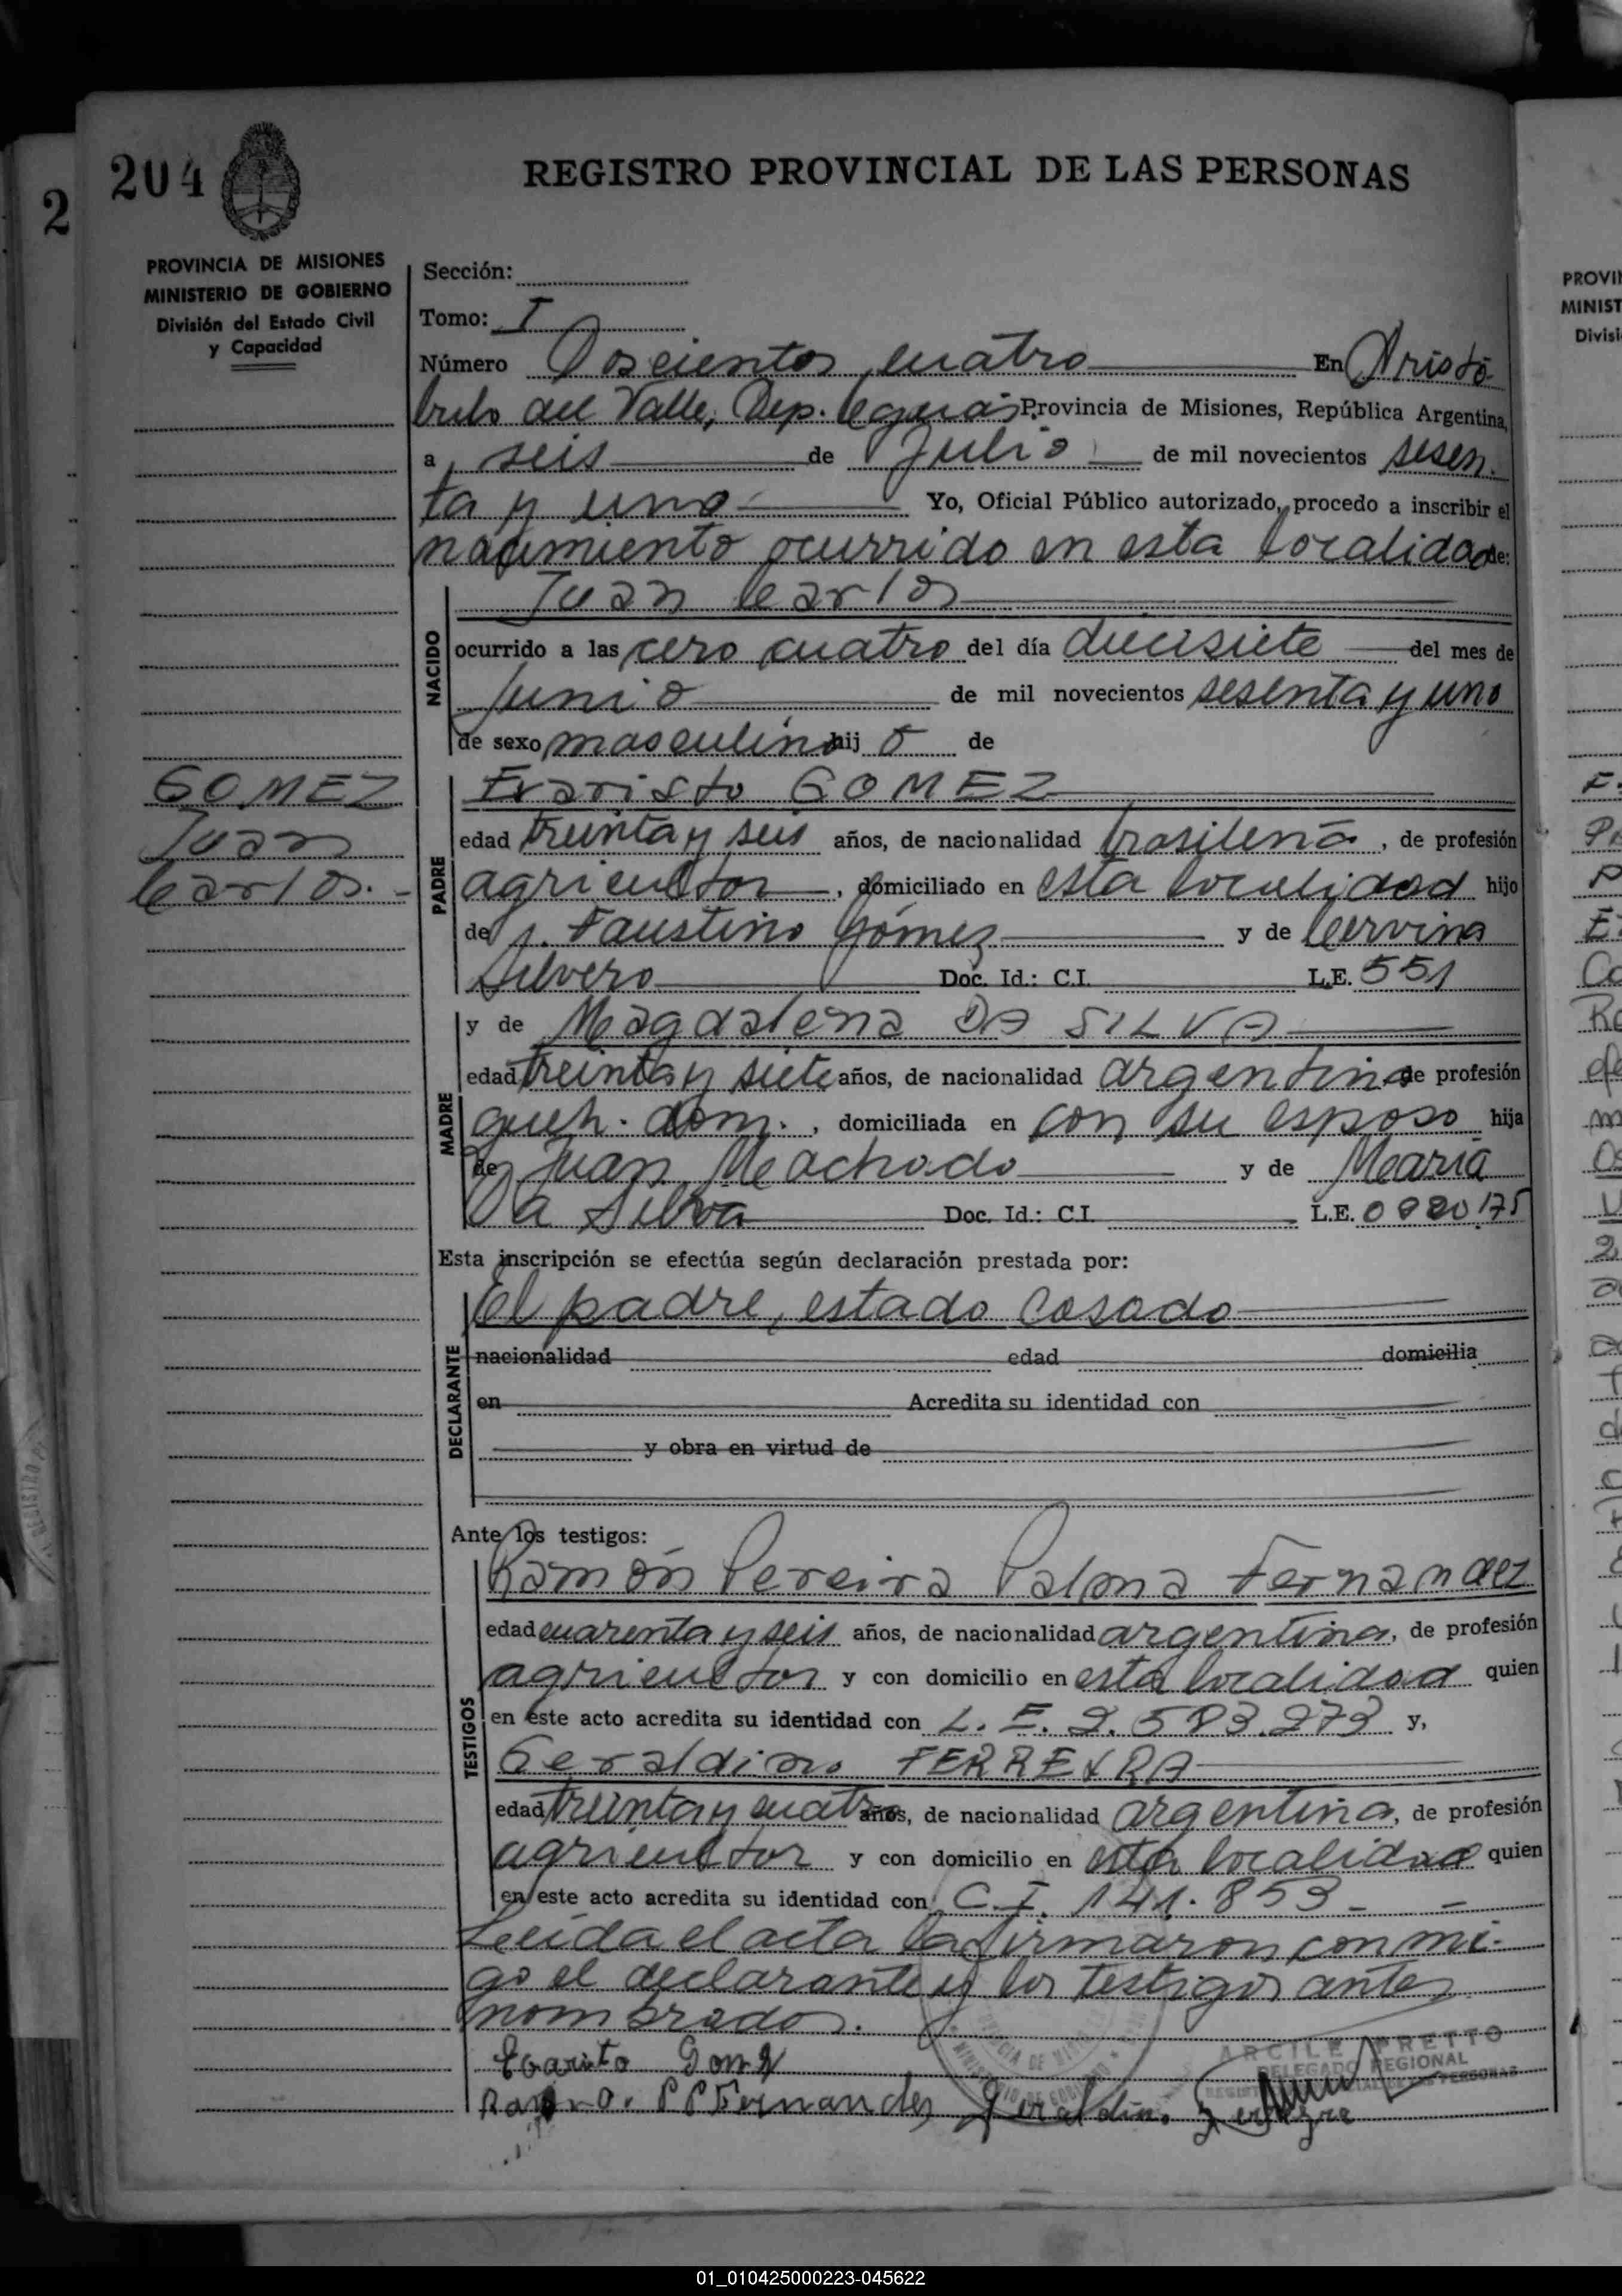 204
2
REGISTRO PROVINCIAL DE LAS PERSONAS
PROVINCIA DE MISIONES
MINISTERIO DE GOBIERNO
División del Estado Civil
y Capacidad
Sección:
Tomo: I
Número Doscientos cuatro En Aristó
bulo del Valle, Dep. Provincia de Misiones, República Argentina,
a seis de Julio de mil novecientos sesen
ta y uno Yo, Oficial Público autorizado, procedo a inscribir el
nacimiento ocurrido en esta localidad de:
Juan Carlos
NACIDO
ocurrido a las cero cuatro del día diecisiete del mes de
junio de mil novecientos sesenta y uno
de sexo masculino hij o de
GOMEZ
Juan
Carlos.-
PADRE
Evaristo GOMEZ
edad treinta y seis años, de nacionalidad brasileña, de profesión
agricultor, domiciliado en esta localidad hijo
de Faustino Gómez y de Cervina
Silvero Doc. Id.: C.I. L.E. 551
MADRE
y de Magdalena DA SILVA
edad treinta y siete años, de nacionalidad argentina de profesión
queh. dom., domiciliada en con su esposo hija
de Juan Machado y de María
Da Silva Doc. Id.: C.I. L.E.
Esta inscripción se efectúa según declaración prestada por:
DECLARANTE
El padre, estado casado
nacionalidad edad domicilia
en Acredita su identidad con
y obra en virtud de
Ante los testigos:
TESTIGOS
Ramón Pereira Palma Fernandez
edad cuarenta y seis años, de nacionalidad argentina, de profesión
agricultor y con domicilio en esta localidad quien
en este acto acredita su identidad con L. E. y,
Geraldino FERREYRA
edad treinta y cuatro años, de nacionalidad argentina, de profesión
agricultor y con domicilio en esta localidad quien
en este acto acredita su identidad con C. I. 141.853 - -
Leída el acta la firmaron conmi-
go el declarante y los testigos antes
nombrados.
ARCILE PRETTO
DELEGADO REGIONAL
Evarito Gomz
P P Fernandes Geraldino
PROVIN
MINIST
Divisi
01_010425000223-045622